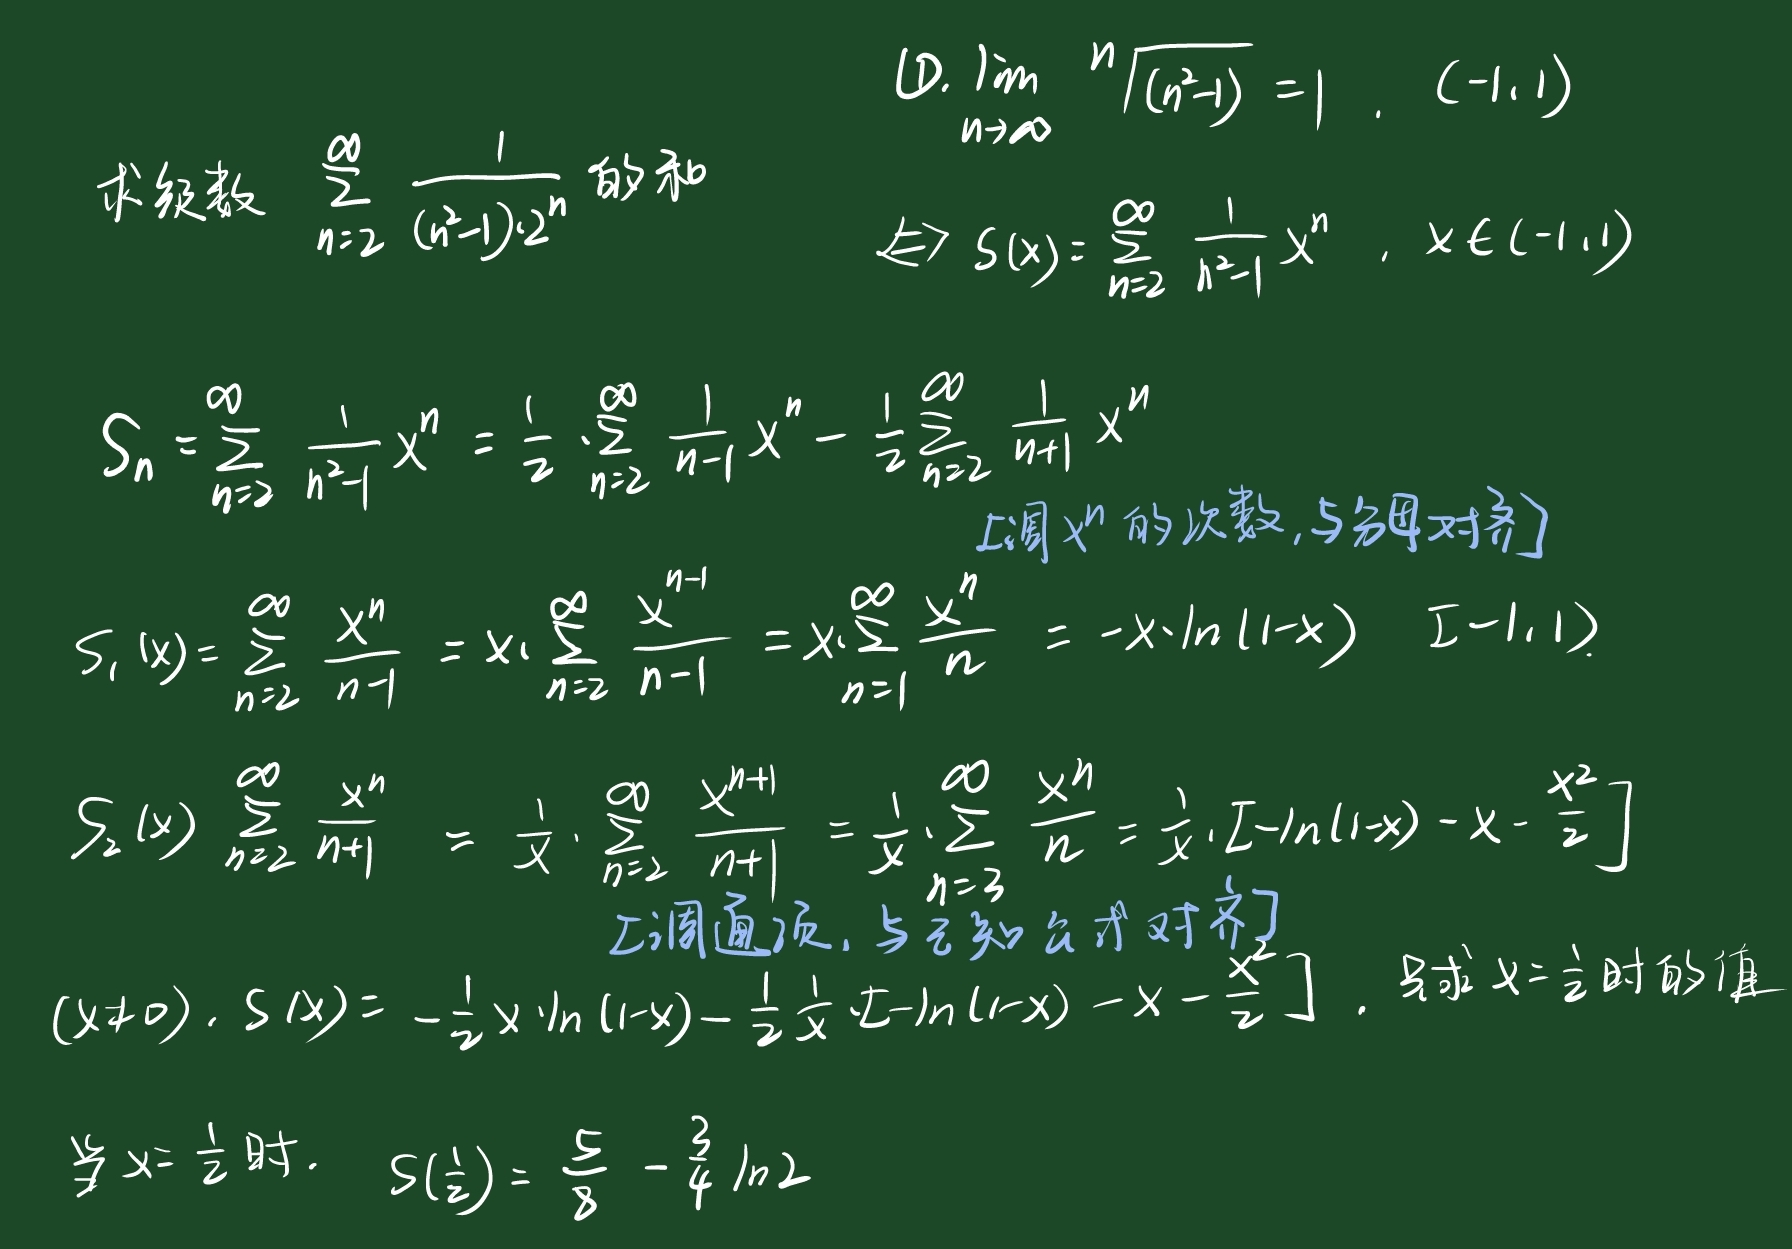 ①. lim n→∞ ⁿ√(n²-1) = 1 . (-1,1)
求级数 ∑_{n=2}^{∞} 1/((n²-1)·2ⁿ) 的和
<=> S(x) = ∑_{n=2}^{∞} 1/(n²-1) xⁿ , x∈(-1,1)
Sₙ = ∑_{n=2}^{∞} 1/(n²-1) xⁿ = 1/2 · ∑_{n=2}^{∞} 1/(n-1) xⁿ - 1/2 ∑_{n=2}^{∞} 1/(n+1) xⁿ
[调 xⁿ 的次数, 与分母对齐]
S₁(x) = ∑_{n=2}^{∞} xⁿ/(n-1) = x· ∑_{n=2}^{∞} x^{n-1}/(n-1) = x· ∑_{n=1}^{∞} xⁿ/n = -x·ln(1-x) [-1,1).
S₂(x) ∑_{n=2}^{∞} xⁿ/(n+1) = 1/x · ∑_{n=2}^{∞} x^{n+1}/(n+1) = 1/x · ∑_{n=3}^{∞} xⁿ/n = 1/x ·[-ln(1-x) - x - x²/2]
[调通项, 与已知公式对齐]
(x≠0). S(x) = -1/2 x·ln(1-x) - 1/2 1/x ·[-ln(1-x) - x - x²/2] . 只求 x=1/2 时的值
当 x=1/2 时. S(1/2) = 5/8 - 3/4 ln2